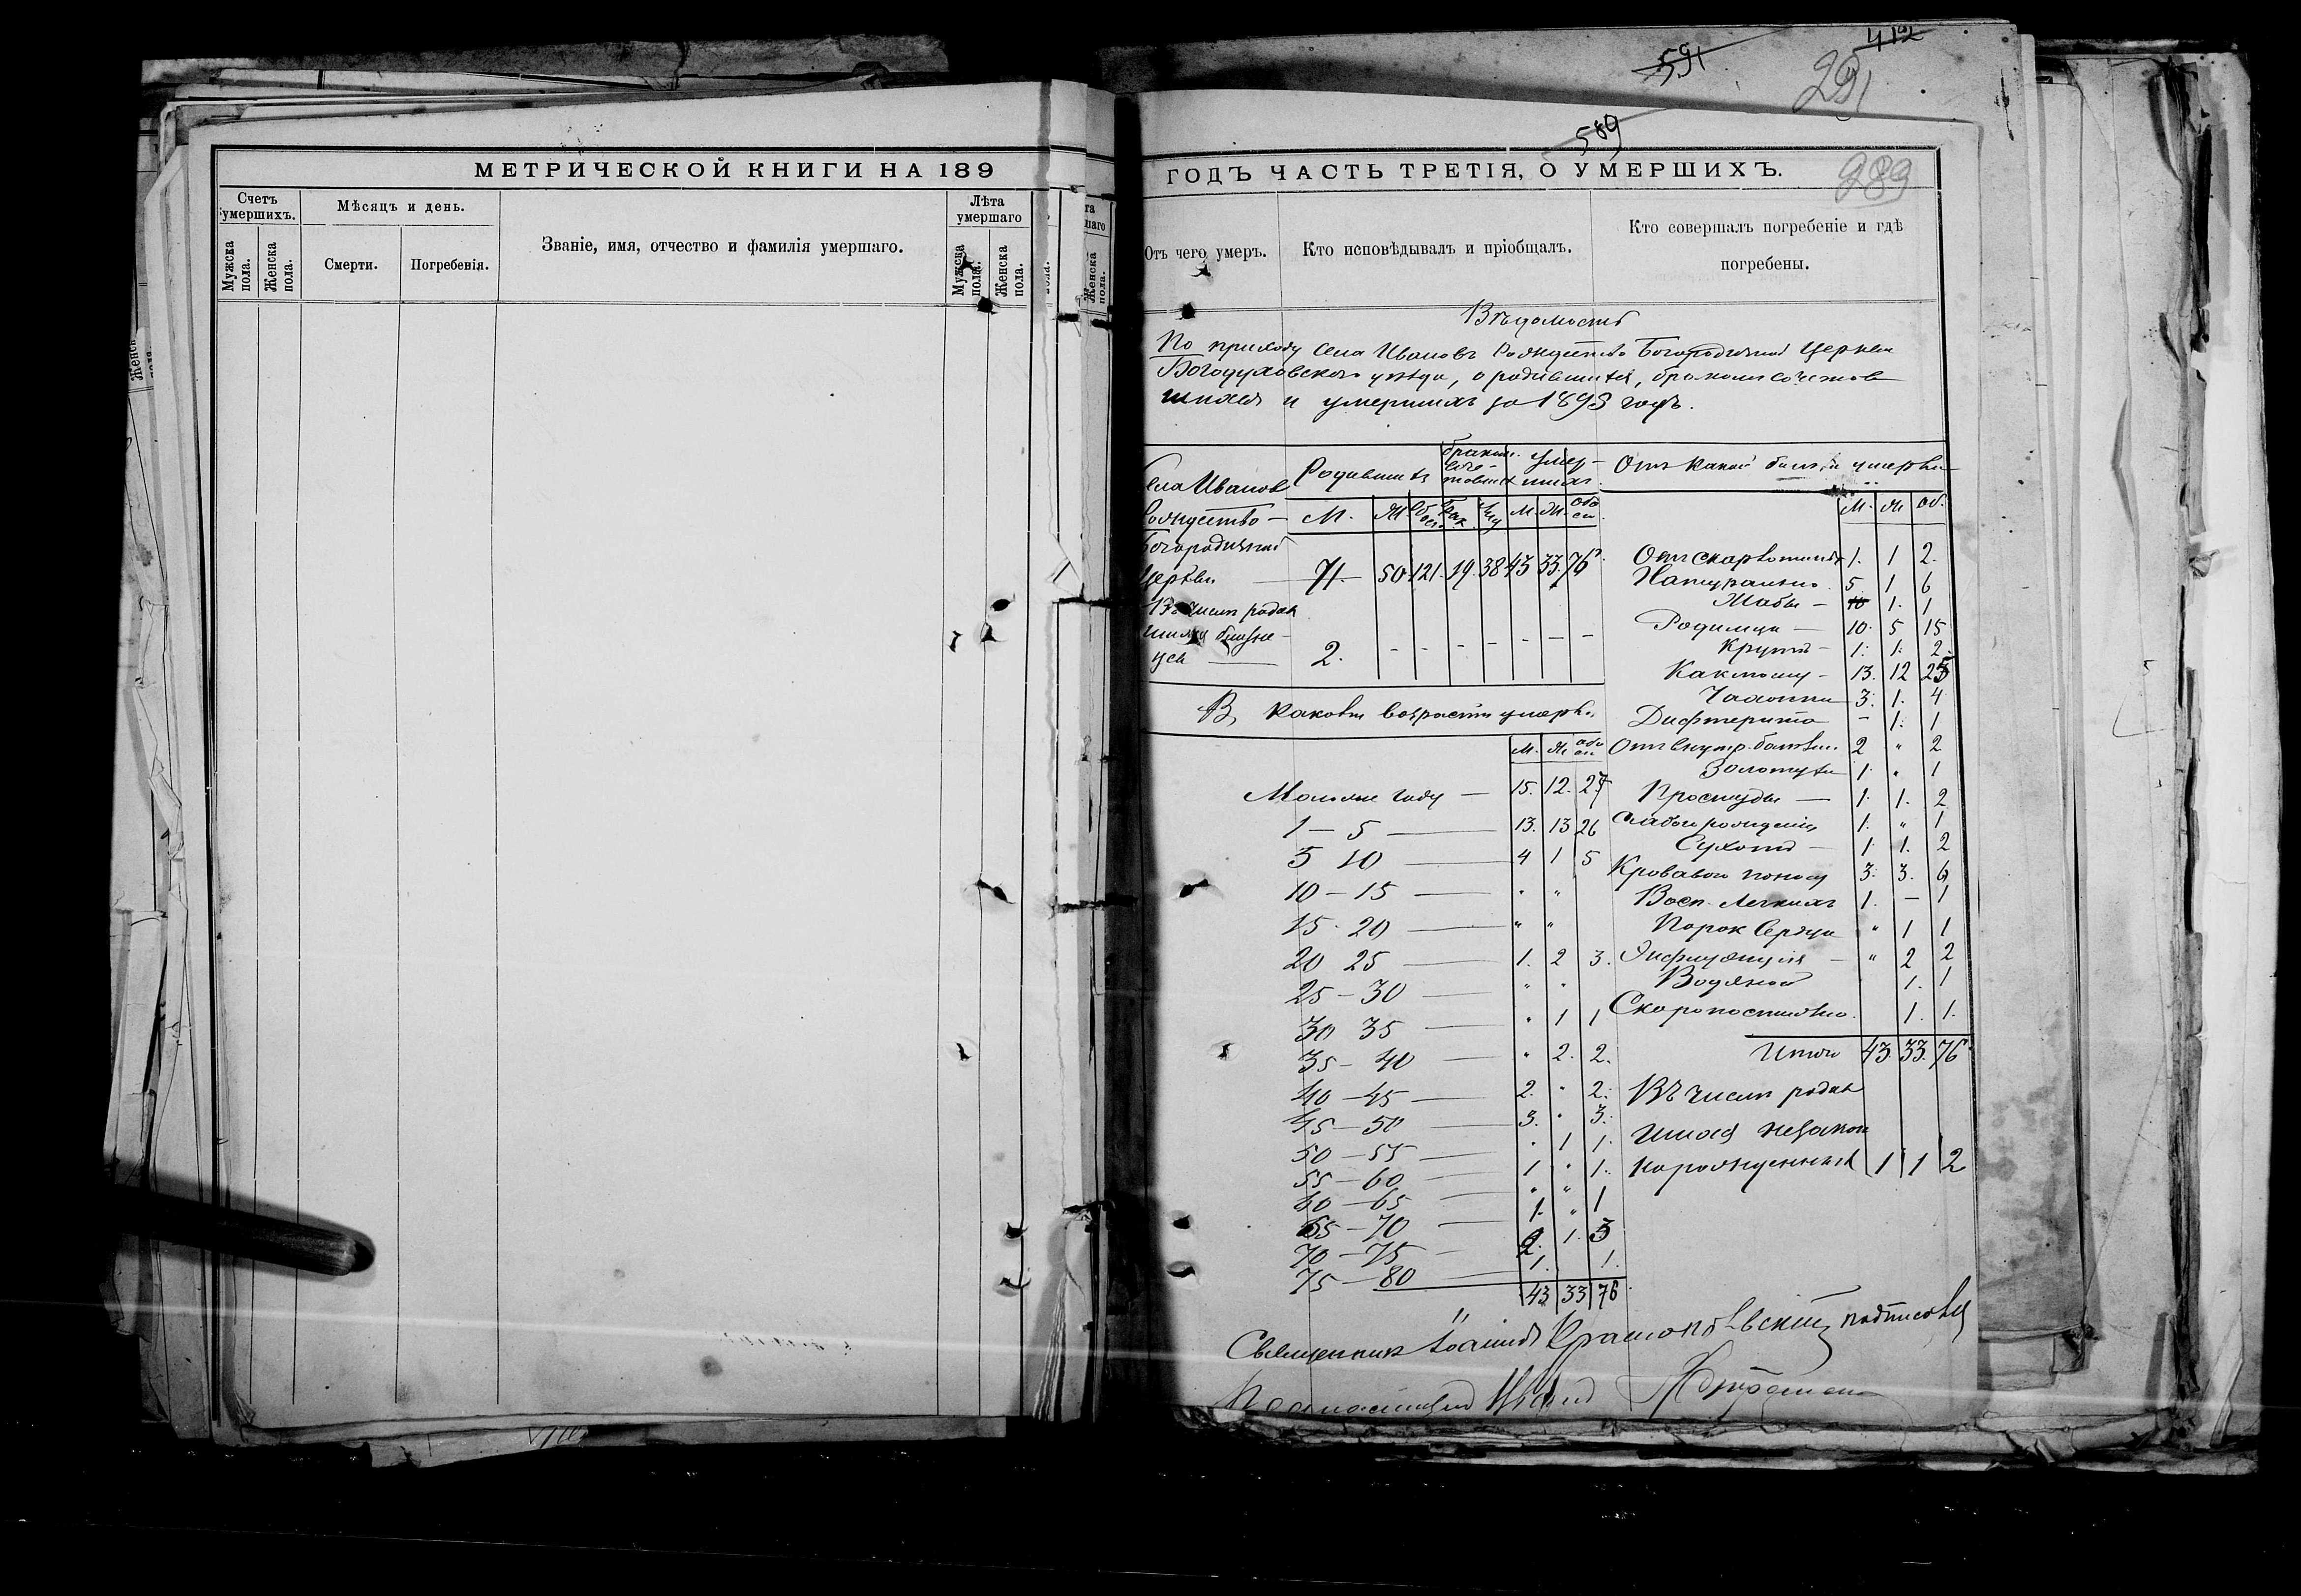 591
412
291
589
МЕТРИЧЕСКОЙ КНИГИ НА 189
ГОДЪ ЧАСТЬ ТРЕТІЯ, О УМЕРШИХЪ.
289
Счетъ умершихъ.
Мѣсяцъ и день.
Званіе, имя, отчество и фамилія умершаго.
Лѣта умершаго
Мужска пола.
Женска пола.
Смерти.
Погребенія.
Мужска пола.
Женска пола.
Отъ чего умеръ.
Кто исповѣдывалъ и пріобщалъ.
Кто совершалъ погребеніе и гдѣ
погребены.
Вѣдомость
По приходу села Ивановъ Рождество Богородичной Церкви
Богодуховского уѣзда, о родившихся, бракомъ сочетав
шихся и умершихъ за 1893 годъ.
Села Ивановъ
Рождество-
Богородичной
Церкви
Родившихся
бракомъ соче-тавших
умер-ших
М. Ж Обоего М. Ж. Обо
71 50 121. 19. 38 43 33. 76
Въ числѣ родив
шихся близне-
цев 2. - - - - - - -
В каковы возрасты умерв.
М. Ж. обо
Моложе году — 15. 12. 27
1 — 5 — 13. 13 26
5 10 — 4 1 5
10 — 15 — " "
15 - 20 — " "
20 25 — 1. 2 3.
25 — 30 — " "
30 35 — " 1 1
35 — 40 — " 2. 2.
40 — 45 — 2. " 2.
45 — 50 — 3. " 3.
50 — 55 — " 1 1.
55 — 60 — 1 " 1.
60 — 65 — " "
65 — 70 — 1. " 1
70 — 75 — 2. 1. 3
75 — 80 — 1. 1.
43 33 76
Отъ какой болезни умерли
М. Ж Об.
От скарлатины 1. 1 2.
Натурально. 5 1 6
Жабы — 1. 1
Родимца — 10. 5 15
Крупа — 1. 1. 2.
Каклюшу — 13. 12 25
Чахотки 3. 1. 4
Дифтерита — 1. 1
От внутр. болезни. 2 " 2
Золотухи 1. " 1
Простуды — 1. 1. 2
Слабого рождения 1. " 1
Сухоты — 1. 1. 2
Кровавого поносу 3. 3. 6
Восп. Легкихъ 1. — 1
Порок Сердца " 1 1
Инфлуэнция — " 2 2
Водяной 1. 1
Скоропостижно. 1. 1.
Итого 43. 33. 76
Въ числѣ родив
шихся незакон
норожденных 1 1 2
Священникъ Іоаннъ подписовы